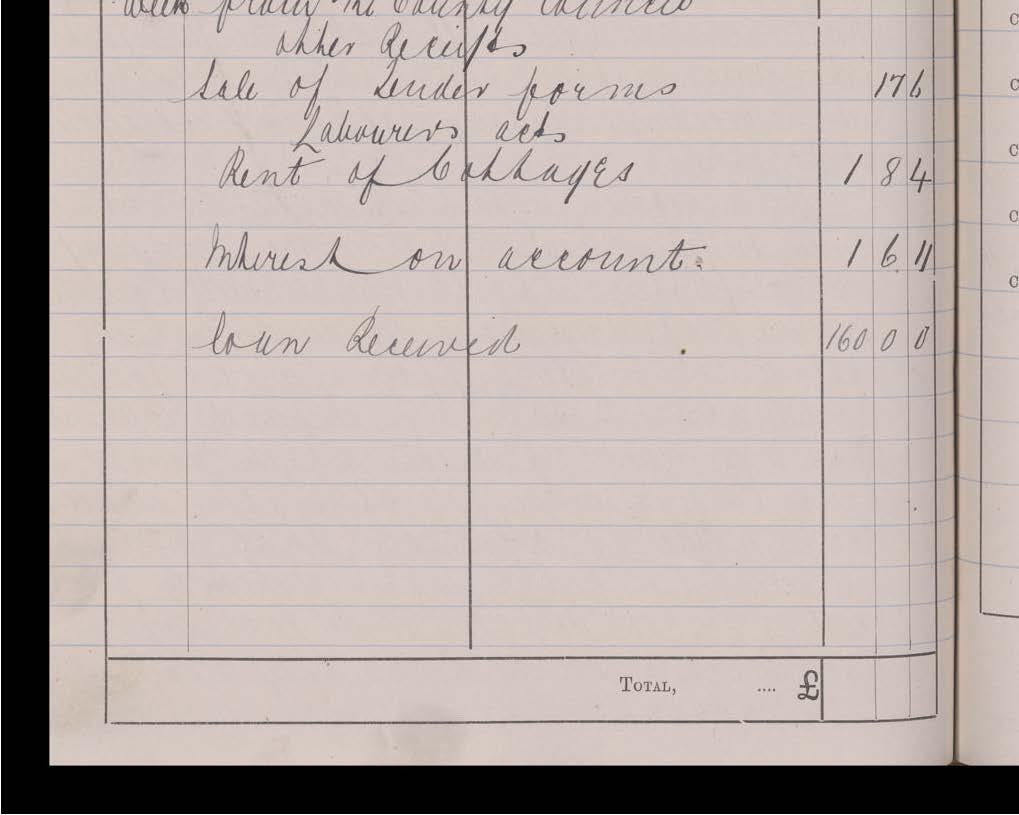 from the County Council
other Receipts
Sale of Tender forms 17 6
Labourers acts
Rent of Cottages 1 8 4
Interest on account. 1 6 11
loan Received 160 0 0
TOTAL, .... £
c
c
c
c
c